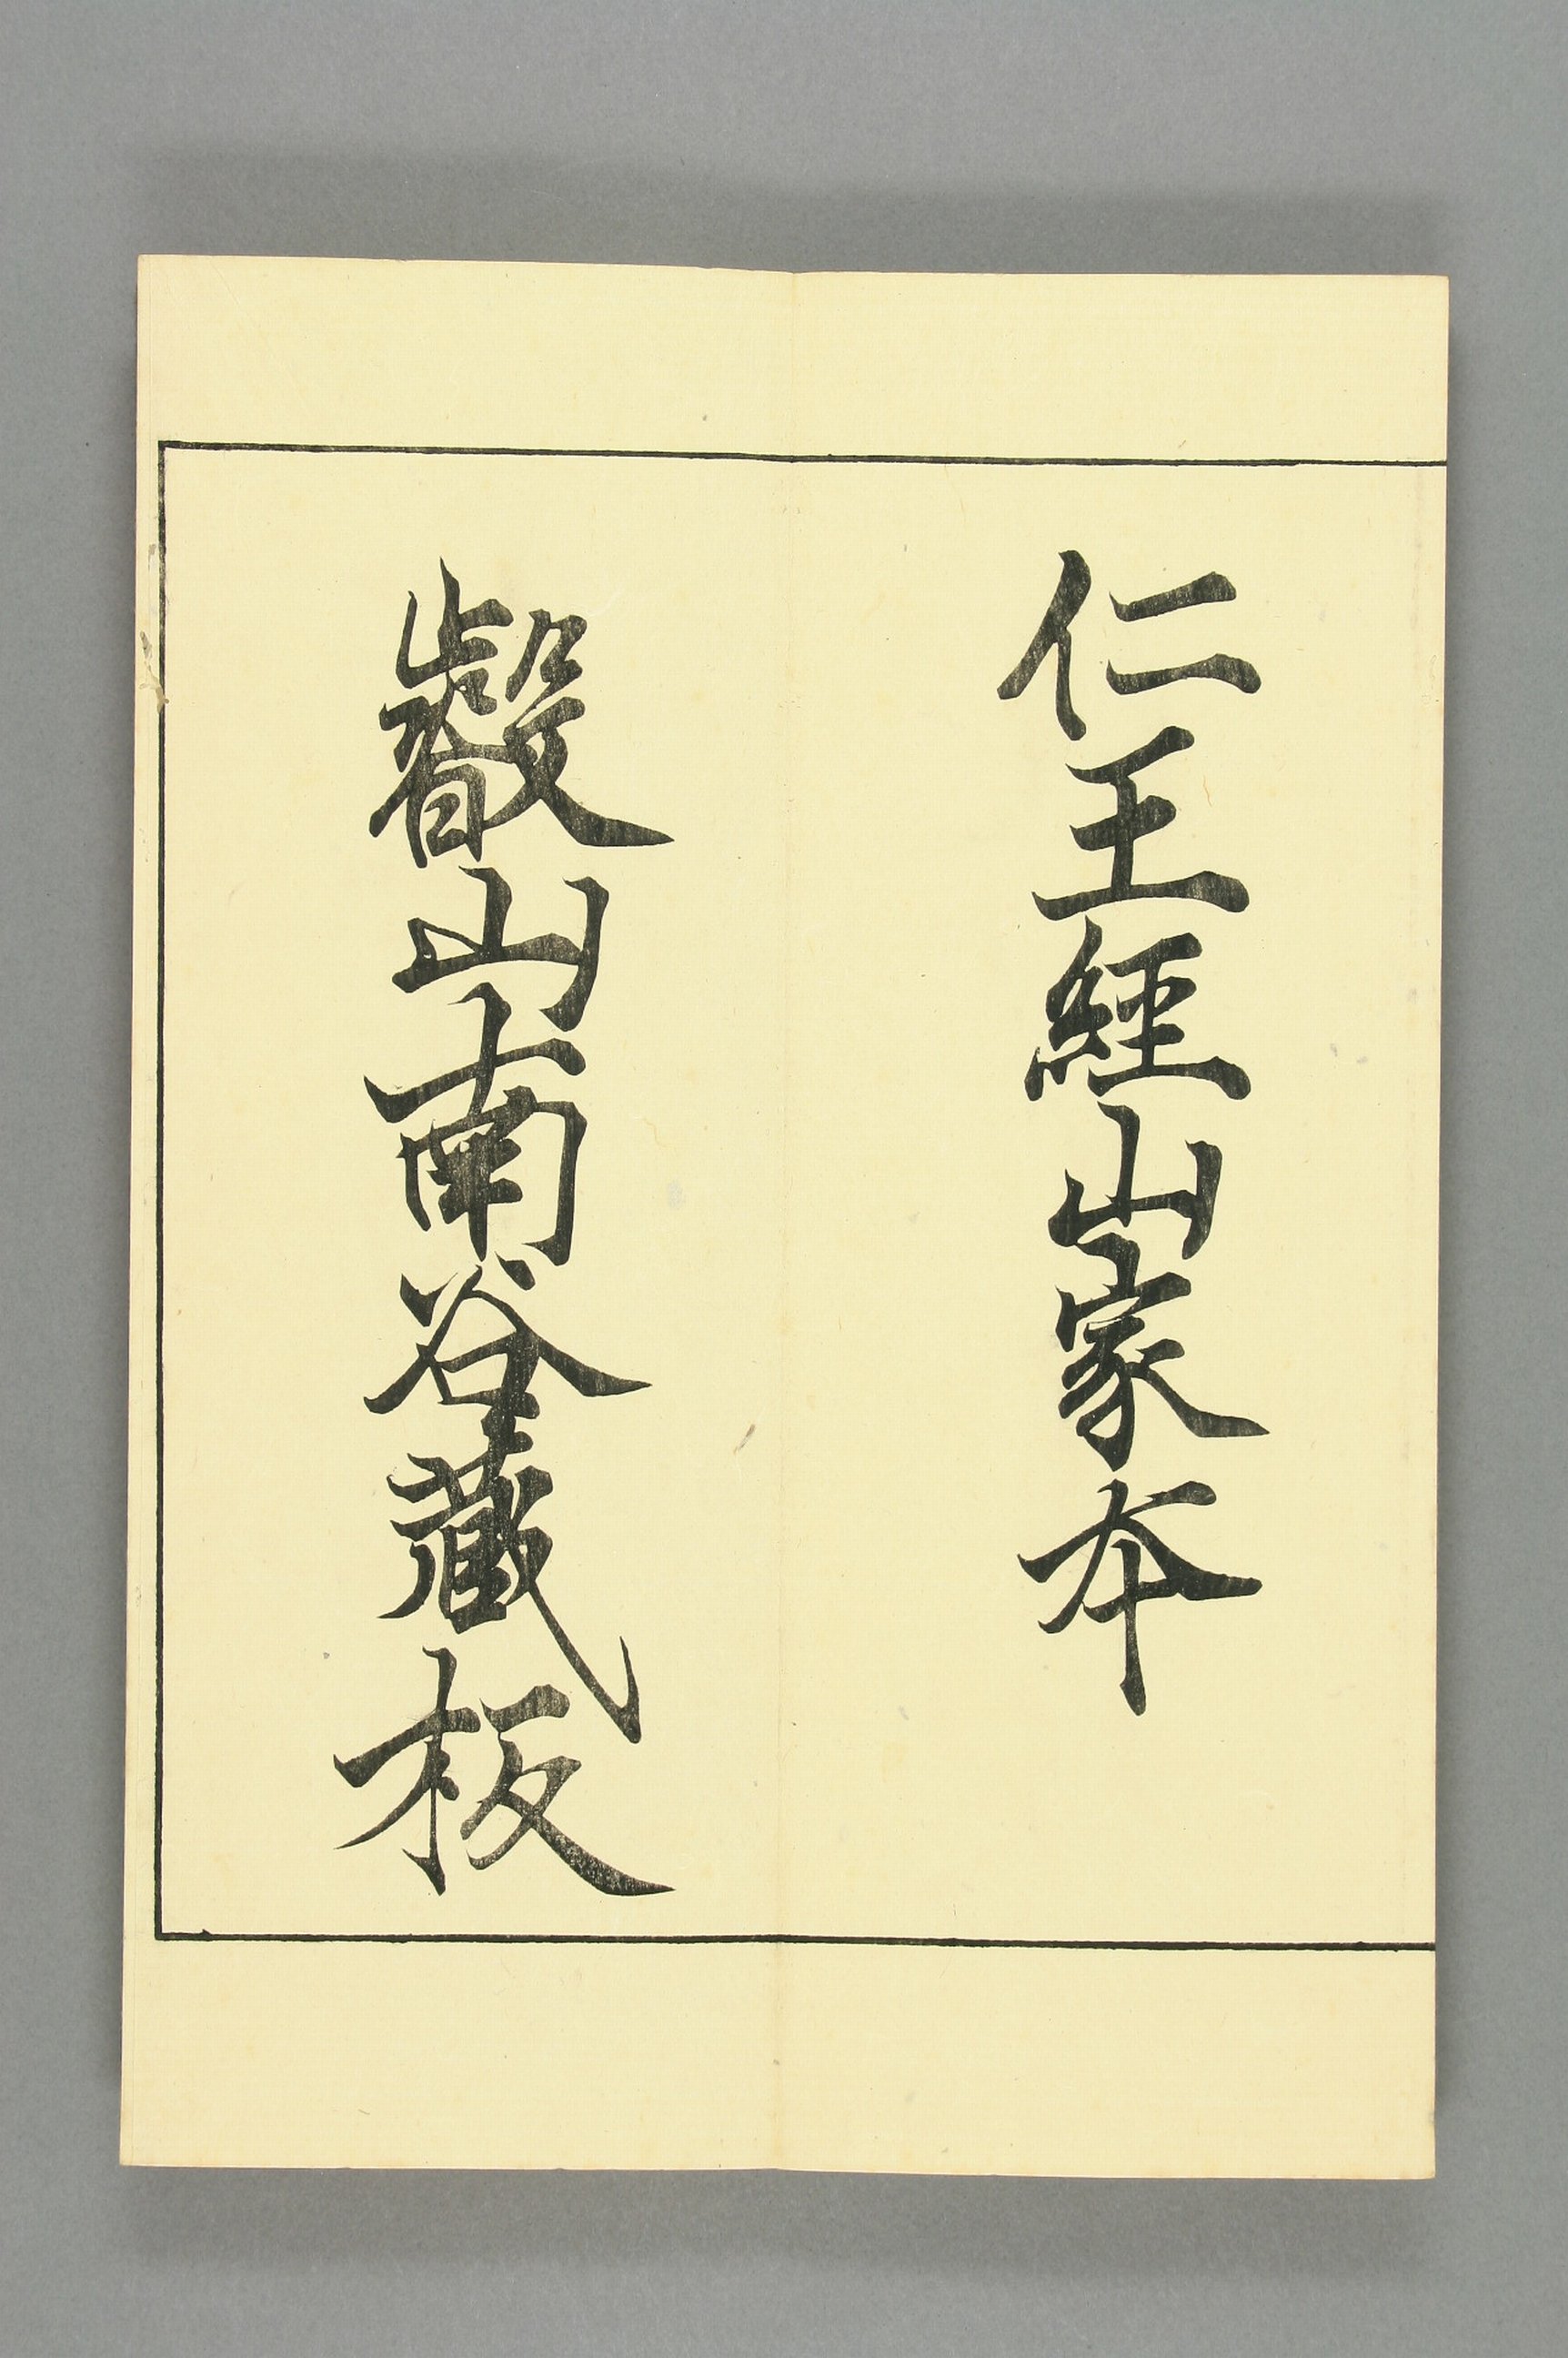 仁王經山家本
叡山南谷藏板